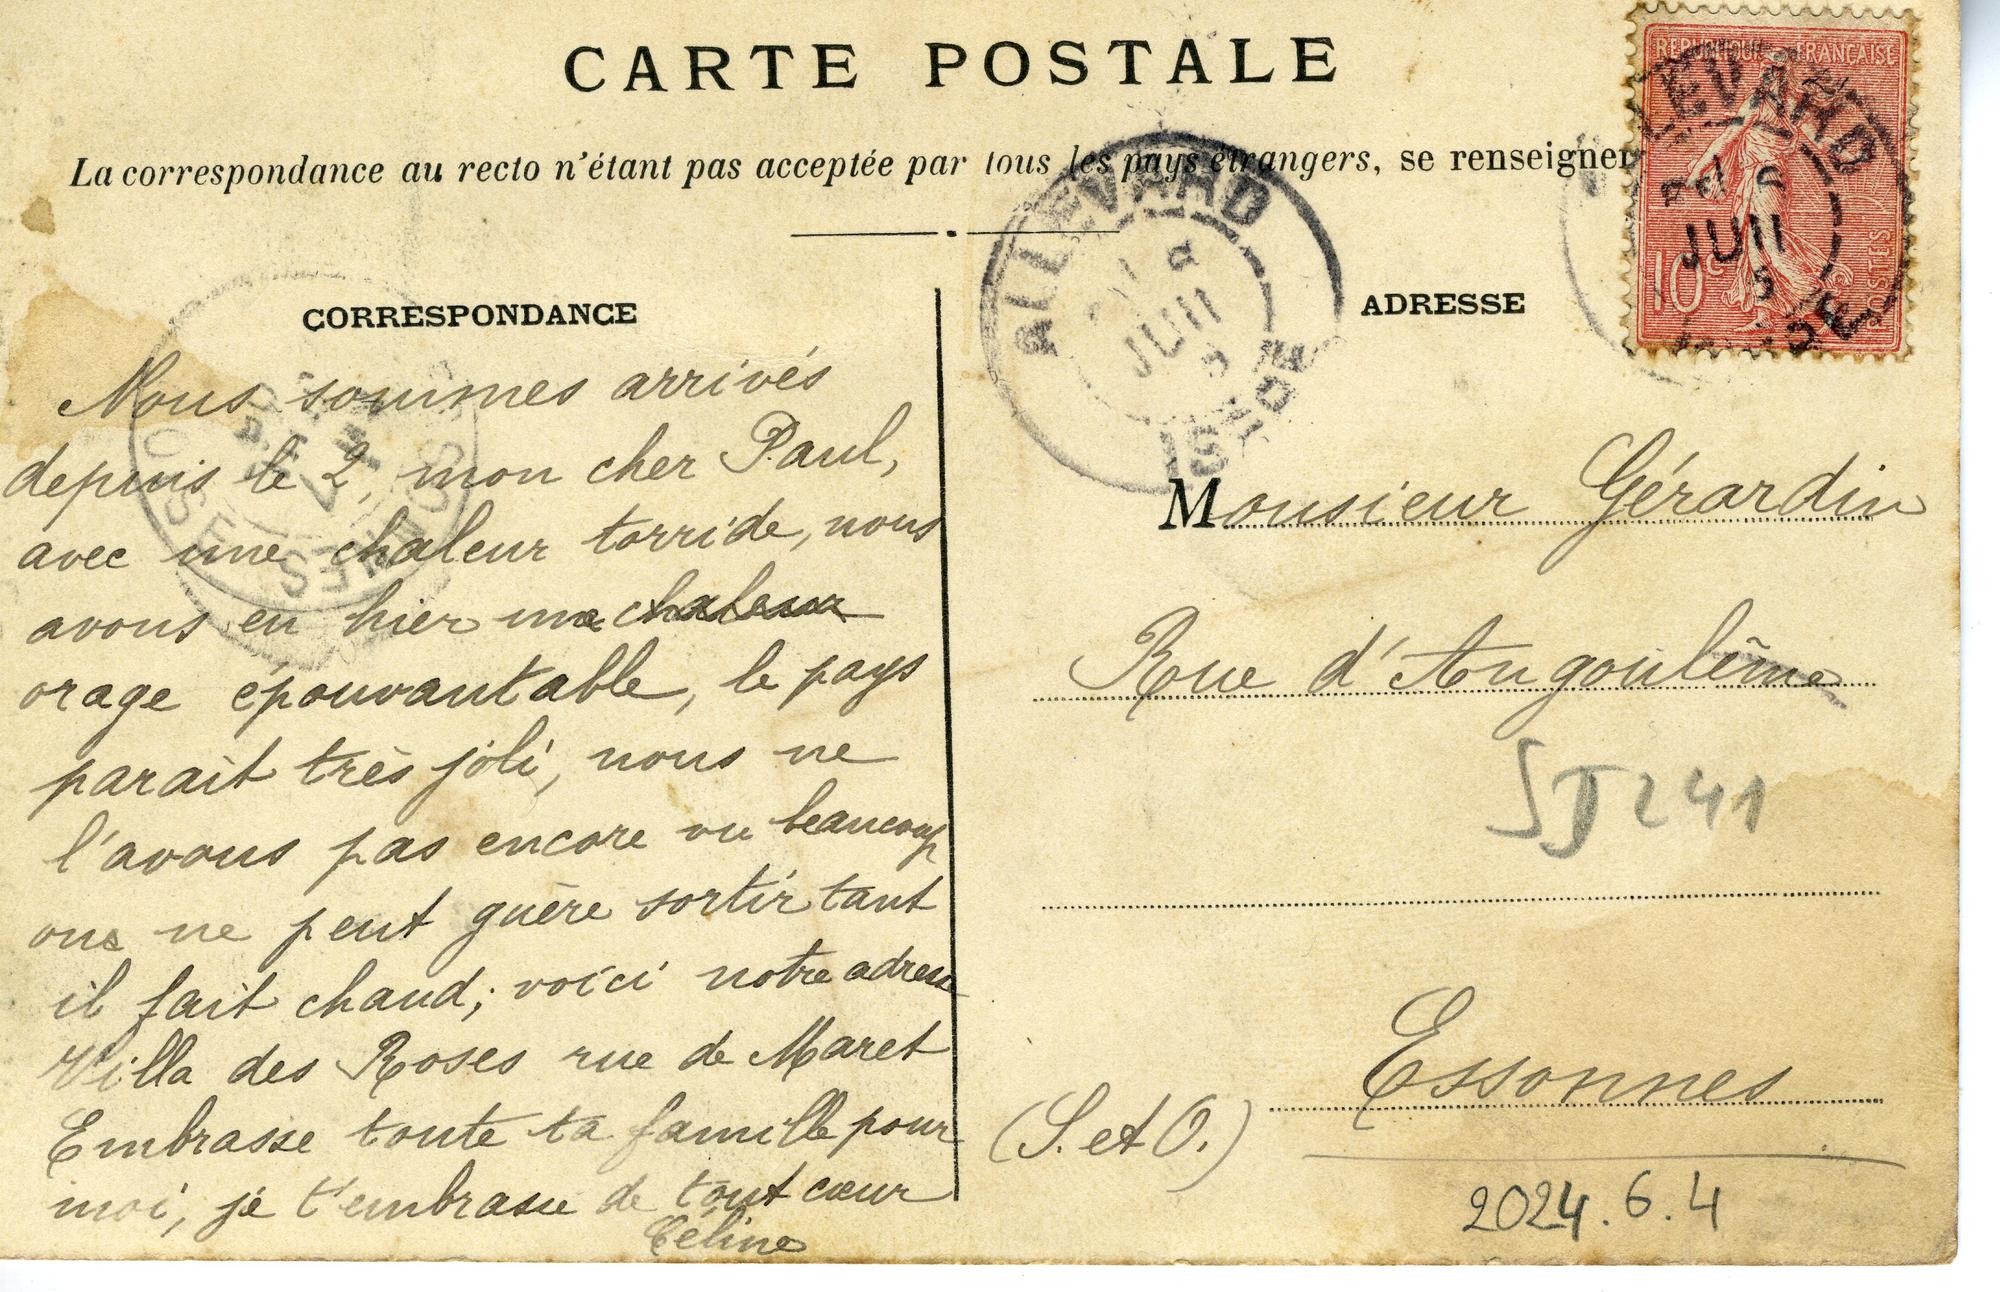 CARTE POSTALE
La correspondance au recto n'étant pas acceptée par tous les pays étrangers, se renseigner
CORRESPONDANCE
Nous sommes arrivés
depuis le 2, mon cher Paul,
avec une chaleur torride, nous
avons eu hier une chaleur
orage épouvantable, le pays
parait très joli, nous ne
l'avons pas encore vu beaucoup
one ne peut guère sortir tant
il fait chaud; voici notre adresse
Villa des Roses rue de Maret
Embrasse toute ta famille pour
moi, je t'embrasse de tout cœur
Céline
ADRESSE
Monsieur Gérardin
Rue d'Angoulême
SJ241
Essonnes
(S. et O.)
2024.6.4
ALLEVARD
JUIL
5
ISÈRE
REPUBLIQUE FRANÇAISE
10c
POSTES
LEVARD
JUIL
5
ESSONNES